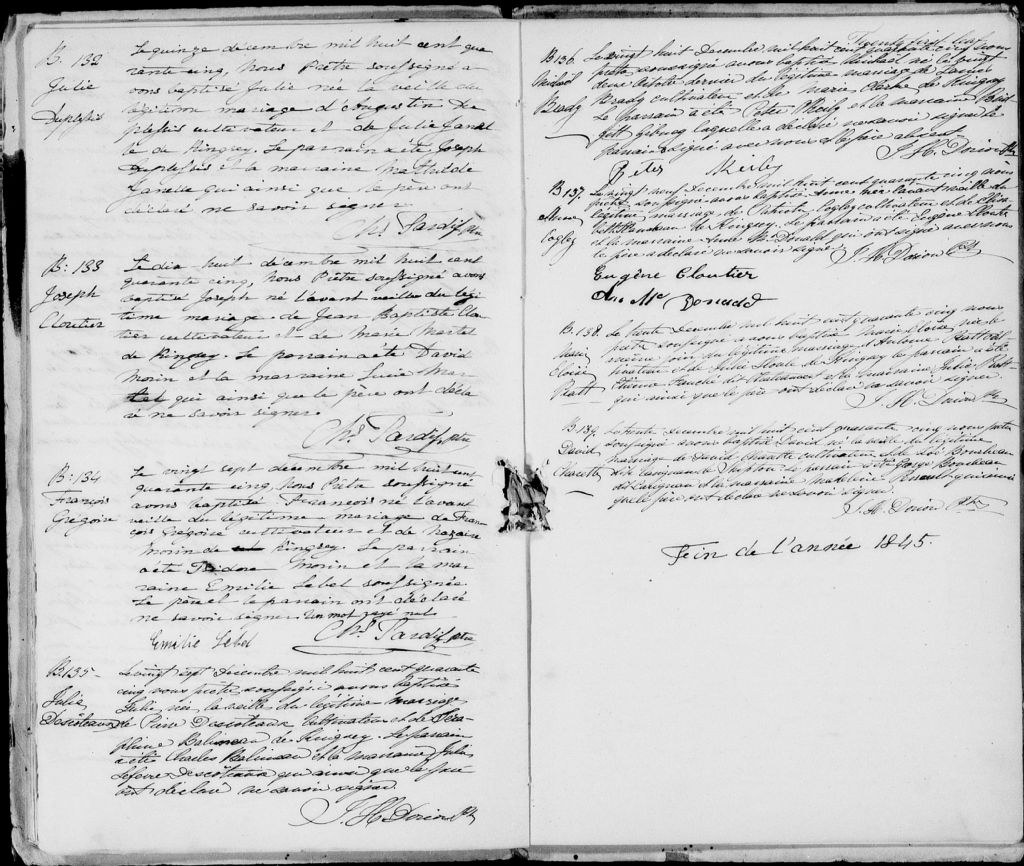 B. 132
Julie
Duplessis
Le quinze décembre mil huit cent qua
rante cinq, Nous Prêtre soussigné a-
vons baptisé Julie née la veille du
légitime mariage d'Augustin Du
plessis cultivateur et de Julie Janel
le de Kingsey. Le parrain a été Joseph
Duplessis et la marraine Mathilde
Janelle qui ainsi que le père ont
déclaré ne savoir signer.
Chs Tardif, ptre
B: 133
Joseph
Cloutier
Le dix huit décembre mil huit cent
quarante cinq, Nous Prêtre soussigné avons
baptisé Joseph né l'avant veille du légi
time mariage de Jean Baptiste Clou
tier cultivateur et de Marie Martel
de Kingsey. Le parrain a été David
Morin et la marraine Lucie Mar-
tel qui ainsi que le père ont décla
ré ne savoir signer.
Chs Tardif, ptre
B: 134
François
Grégoire
Le vingt sept décembre mil huit cent
quarante cinq, Nous Prêtre soussigné
avons baptisé François né l'avant
veille du légitime mariage de Fran
çois Grégoire cultivateur et de Nazaire
Morin de Kingsey. Le parrain
a été Morin et la mar
raine Emilie Lebel soussignée.
Le père et le parrain ont déclaré
ne savoir signer. Un mot rayé nul
Emilie Lebel
Chs Tardif, ptre
B. 135-
Julie
Descôteaux
Le vingt sept décembre mil huit cent quarante
cinq nous prêtre soussigné avons baptisé
Julie née la veille du légitime mariage
de Descoteaux cultivateur et de
de Kingsey. Le parrain
a été Charles et la marraine Julie
Lefevre Descôteaux qui ainsi que le père
ont déclaré ne savoir signer.
J. H. Dorion Ptre
B. 136
Michael
Brady
Le vingt huit Décembre mil huit cent quarante cinq nous
prêtre soussigné avons baptisé Michael né le vingt
deux Octobre dernier du légitime mariage de
Brady cultivateur et de Marie de Kingsey
Le parrain a été Peter et la marraine Brid
gett laquelle a déclaré ne savoir signer le
parrain a signé avec nous. Le père absent.
J. H. Dorion Ptre
Peter
B 137.
Cogley
Le vingt neuf Décembre mil huit cent quarante cinq nous
prêtre soussigné avons baptisé Anne née l'avant veille du
légitime mariage de Patrick Cogley cultivateur et de
de Kingsey. Le parrain a été Eugène Cloutier
et la marraine Anne Mc Donald qui ont signé avec nous
le père a déclaré ne savoir signer.
J. H. Dorion Ptre
Eugène Cloutier
Ann Mc Donald
B. 138.
Marie
Eloise
Le trente Décembre mil huit cent quarante cinq nous
prêtre soussigné avons baptisé Marie Eloise née le
même jour du légitime mariage d'Antoine cul
tivateur et de Julie de Kingsey le parrain a été
Etienne dit et la marraine Julie
qui ainsi que le père ont déclaré ne savoir signer.
J. H. Dorion Ptre
B. 139.
David
Charette
Le trente Décembre mil huit cent quarante cinq nous prêtre
soussigné avons baptisé David né la veille du légitime
mariage de David Charette cultivateur et de
dit Lavignan de Shipton. Le parrain a été
dit Lavignan et la marraine Madeleine qui ainsi
que le père ont déclaré ne savoir signer.
J. H. Dorion Ptre
Fin de l'année 1845.